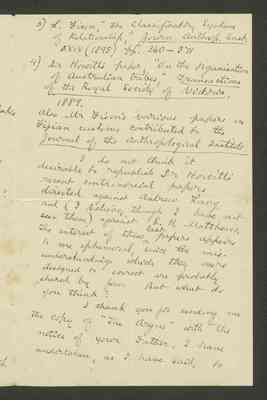 3) L. Fison, "The Classificatory System
of Relationship," Journ. Anthrop. Inst.
XXIV (1895) pp. 360-371
4) Dr Howitt's paper, "On the Organisation
of Australian Tribes" Transactions
of the Royal Society of Victoria,
1889.
Also Mr Fison's various papers on
Fijian customs contributed to the
Journal of the Anthropological Institute
I do not think it
desirable to republish Dr Howitt's
recent controversial papers
directed against Andrew Lang
and (I believe, though I have not
seen them) against R. H. Mathews,
the interest of these last papers appears
to me ephemeral, since the mis-
understandings which they were
designed to correct are probably
shared by few. But what do
you think?
I thank you for sending me
the copy of "The Argus" with the
notice of your Father. I have
undertaken, as I have said, to